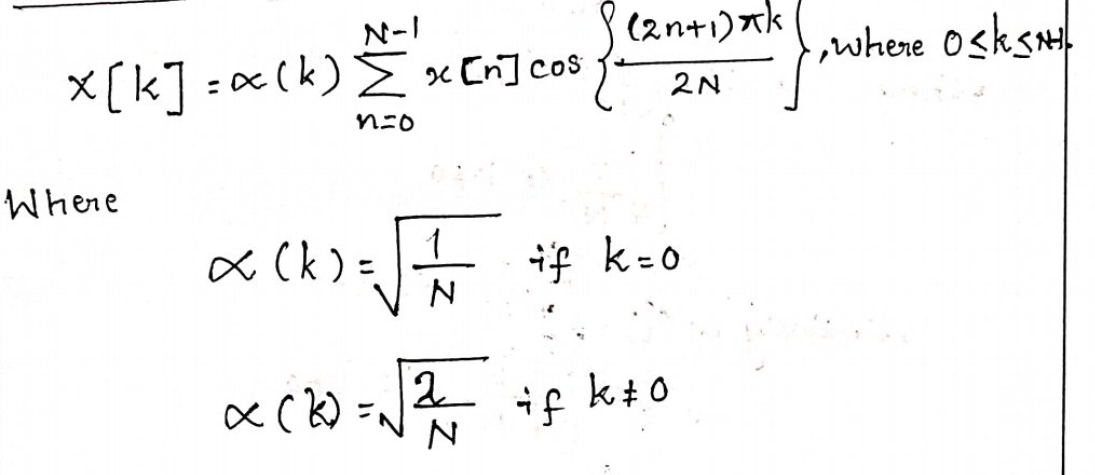 X[k] = ∝(k) Σ_{n=0}^{N-1} x[n] cos {(2n+1)πk / 2N}, where 0≤k≤N-1.
Where
∝(k) = √(1/N) if k=0
∝(k) = √(2/N) if k≠0